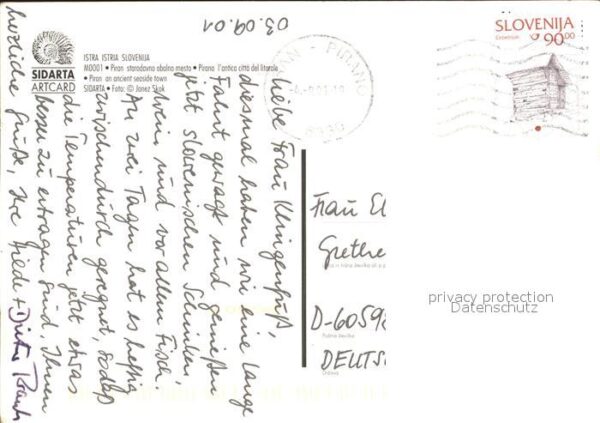 03.09.01
Liebe Frau Klingenfuß,
diesmal haben wir eine lange
Fahrt gewagt und genießen
jetzt slowenischen Schinken,
Wein und vor allem Fisch.
An zwei Tagen hat es heftig
zwischendurch geregnet, sodaß
die Temperaturen jetzt etwas
besser zu ertragen sind. Ihnen
herzliche Grüße, Ihre Hilde +
SIDARTA
ARTCARD
ISTRA ISTRIA SLOVENIJA
M0001 • Piran starodavno obalno mesto • Pirano l'antica città del litorale
• Piran an ancient seaside town
SIDARTA • Foto: © Janez Skok
PIRAN - PIRANO
6330
SLOVENIJA
90.00
Frau El
Grethe
D-60598
DEUTS
privacy protection
Datenschutz